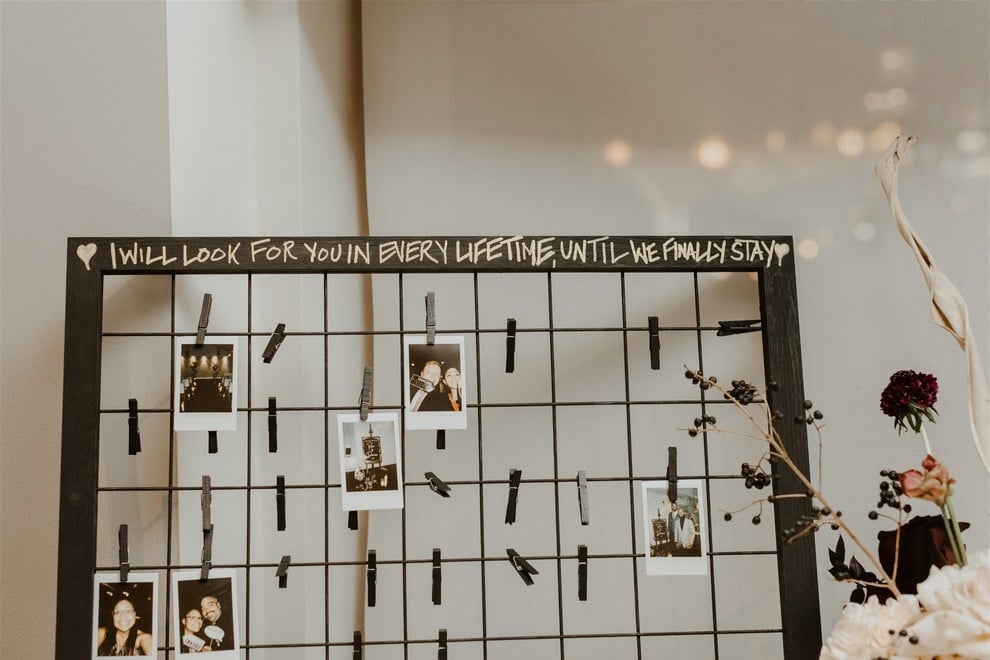 I WILL LOOK FOR YOU IN EVERY LIFETIME, UNTIL WE FINALLY STAY